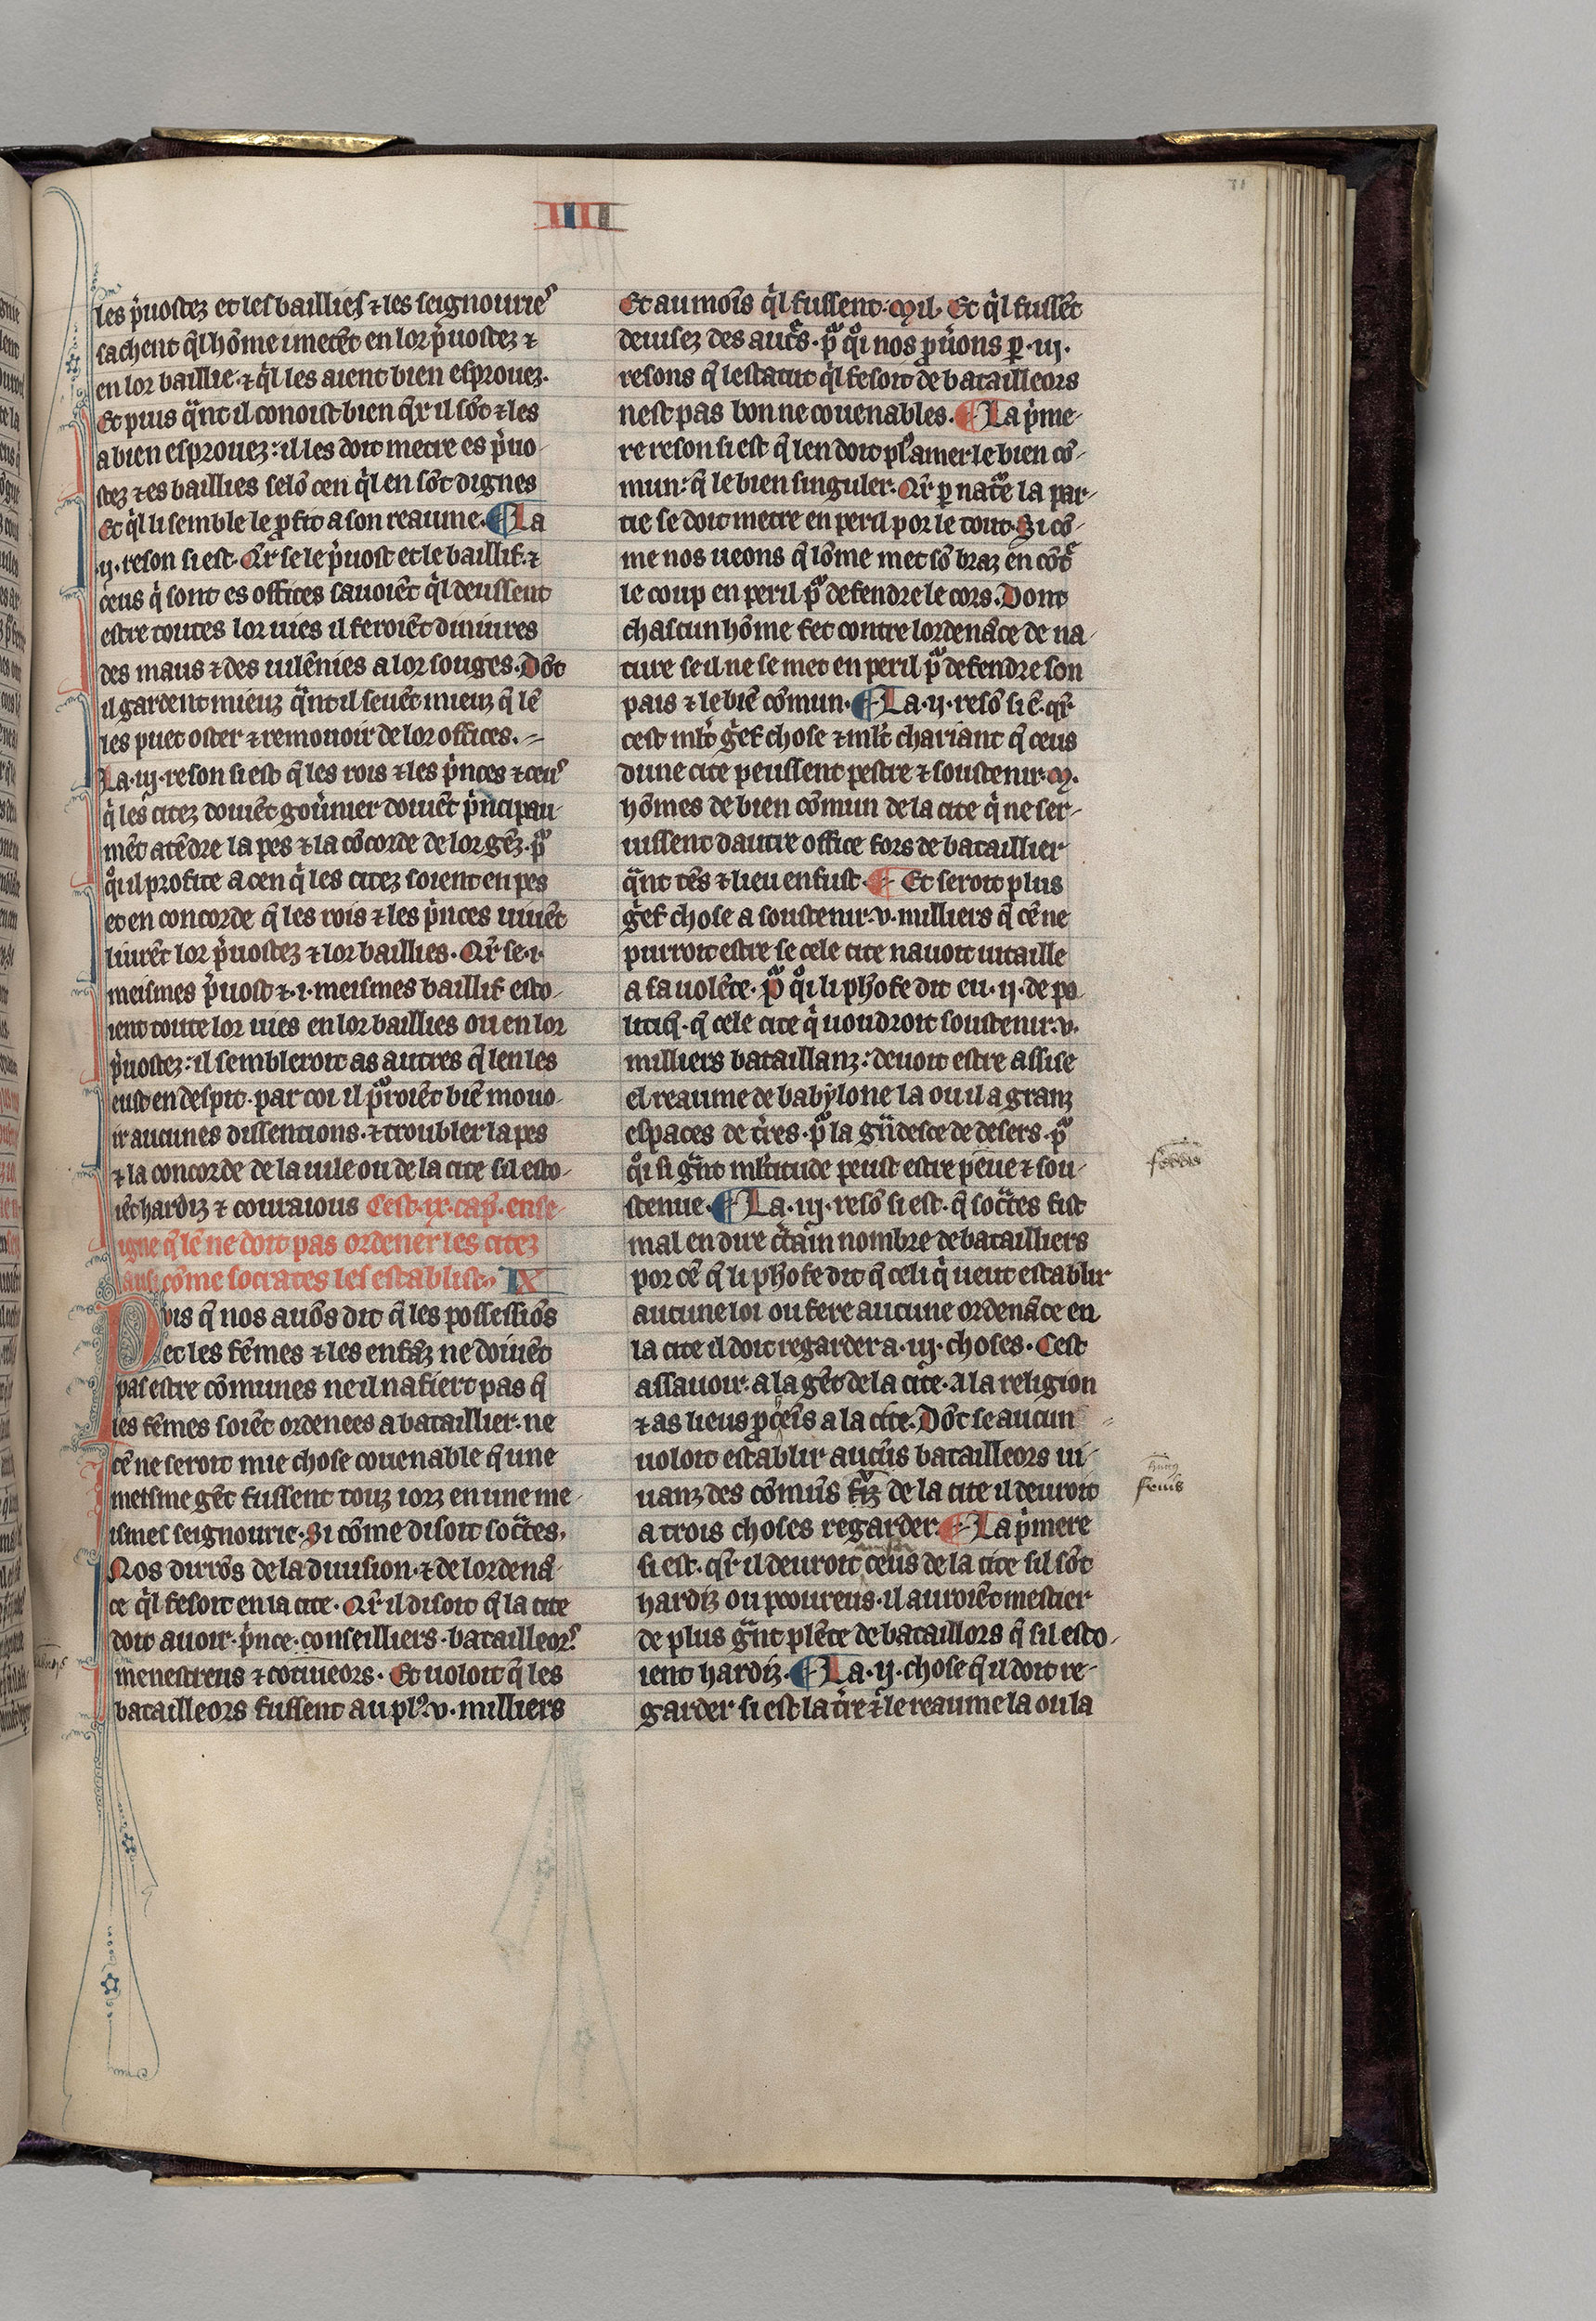 IIII
71
les p̾uostez et les baillies ⁊ les seignouries
sachent q̄l hōme i metēt en lor p̾uostez ⁊
en lor baillie. ⁊ q̄l les aient bien esprouez.
Et puis qᵃnt il conoist bien qͥx il sōt ⁊ les
a bien esprouez: il les doit metre es p̾uo-
stez ⁊ es baillies selō cen qͥl en sōt dignes
Et qͥl li semble le ꝓfit a son reaume. ¶ La
.ij. reson si est. Qᵃr se le p̾uost et le baillif. ⁊
ceus qͥ sont es offices sauoiēt qͥl deussent
estre toutes lor uies il feroiēt diniures
des maus ⁊ des uilēnies a lor souges. Dōt
il gardent mieuz qᵃnt il seuēt mieuz q̄ lē
les puet oster ⁊ remouoir de lor offices.
La .iij. reson si est q̄ les rois ⁊ les pͥnces ⁊ ceus
qͥ les citez douiēt gou̾ner douiēt pͥncipau-
mēt atēdre la pes ⁊ la cōcorde de lor gēz. pᵒ
qᵒi il profite a cen qͥ les citez soient en pes
et en concorde q̄ les rois ⁊ les pͥnces uiuēt
liurēt lor p̾uostez ⁊ lor baillies. Qᵃr se .i.
meismes p̾uost ⁊ .i. meismes baillif esto-
ient toute lor uies en lor baillies ou en lor
p̾uostez: il sembleroit as autres q̄ len les
eust en despit. par coi il pᵒroiēt biē mouo-
ir aucunes dissentions. ⁊ troubler la pes
⁊ la concorde de la uile ou de la cite sil esto-
iēt hardiz ⁊ couraious Cest .ix. cap̄. ense-
igne q̄ lē ne doit pas ordener les citez
ausi cōme socrates les establist. IX
Puis q̄ nos auōs dit q̄ les possessiōs
et les fēmes ⁊ les enfāz ne doiuēt
pas estre cōmunes ne il nafiert pas q̄
les fēmes soiēt ordenees a bataillier. ne
cē ne seroit mie chose couenable q̄ une
meisme gēt fussent touz iorz en une me-
ismes seignourie. Si cōme disoit socᵃtes.
Nos dirrōs de la diuision. ⁊ de lordenā-
ce qͥl fesoit en la cite. Qᵃr il disoit q̄ la cite
doit auoir. pͥnce. conseilliers. batailleors.
menestreus ⁊ cotiueors. Et uoloit q̄ les
batailleors fussent au plꝰ .v. milliers
Et au mois qͥl fussent. Mil. Et qͥl fussēt
deuisez des aut͛s. pᵒ qᵒi nos ꝓuons ꝑ .iij.
resons q̄ lestatut qͥl fesoit de batailleors
nest pas bon ne couenables. ¶ La pͥme-
re reson si est q̄ len doit plꝰ amer le bien cō-
mun: q̄ le bien singuler. Qᵃr ꝑ nat͛e la par-
tie se doit metre en peril por le tout. Si cō-
me nos ueons q̄ lōme met sō braz en cōt͛
le coup en peril pᵒ defendre le cors. Donc
chascun hōme fet contre lordenāce de na-
ture se il ne se met en peril pᵒ defendre son
pais ⁊ le biē cōmun. ¶ La .ij. resō si ē. qᵃr
cest ml̾t g͛ef chose ⁊ ml̾t chariant q̄ ceus
dune cite peussent pestre ⁊ soustenir .M.
hōmes de bien cōmun de la cite qͥ ne ser-
uissent dautre office fors de bataillier
qᵃnt tēs ⁊ lieu en fust. ¶ Et seroit plus
g͛ef chose a soustenir .v. milliers q̄ cē ne
purroit estre se cele cite nauoit uitaille
a sa uolēte. Pᵒ qᵒi li ph̄ofe dit eu .ij. de po-
litiq̄. q̄ cele cite qͥ uoudroit soustenir .v.
milliers bataillanz: deuoit estre assise
el reaume de babylone la ou il a granz
espaces de t͛res. pᵒ la gᵃndesce de desers. pᵒ
qᵒi si gᵃnt ml̾titude peust estre peue ⁊ sou-
stenue. ¶ La .iij. resō si est. q̄ socᵃtes fist
mal en dire c͛tain nombre de batailliers
por cē q̄ li ph̄ofe dit q̄ celi qͥ ueut establir
aucune loi ou fere aucune ordenāce en
la cite il doit regarder a .iij. choses. Cest
assauoir. a la gēt de la cite. A la religion
⁊ as lieus ꝓceīs a la cite. Dōt se aucun
uoloit establir aucūs batailleors ui-
uanz des cōmūs de la cite il deuroit
a trois choses regarder. ¶ La pͥmere
si est. qᵃr il deuroit ceus de la cite sil sōt
hardiz ou poureus. il auroiēt mestier
de plus gᵃnt plēte de bataillors q̄ sil esto-
ient hardiz. ¶ La .ij. chose q̄ il doit re-
garder si est la t͛re ⁊ le reaume la ou la